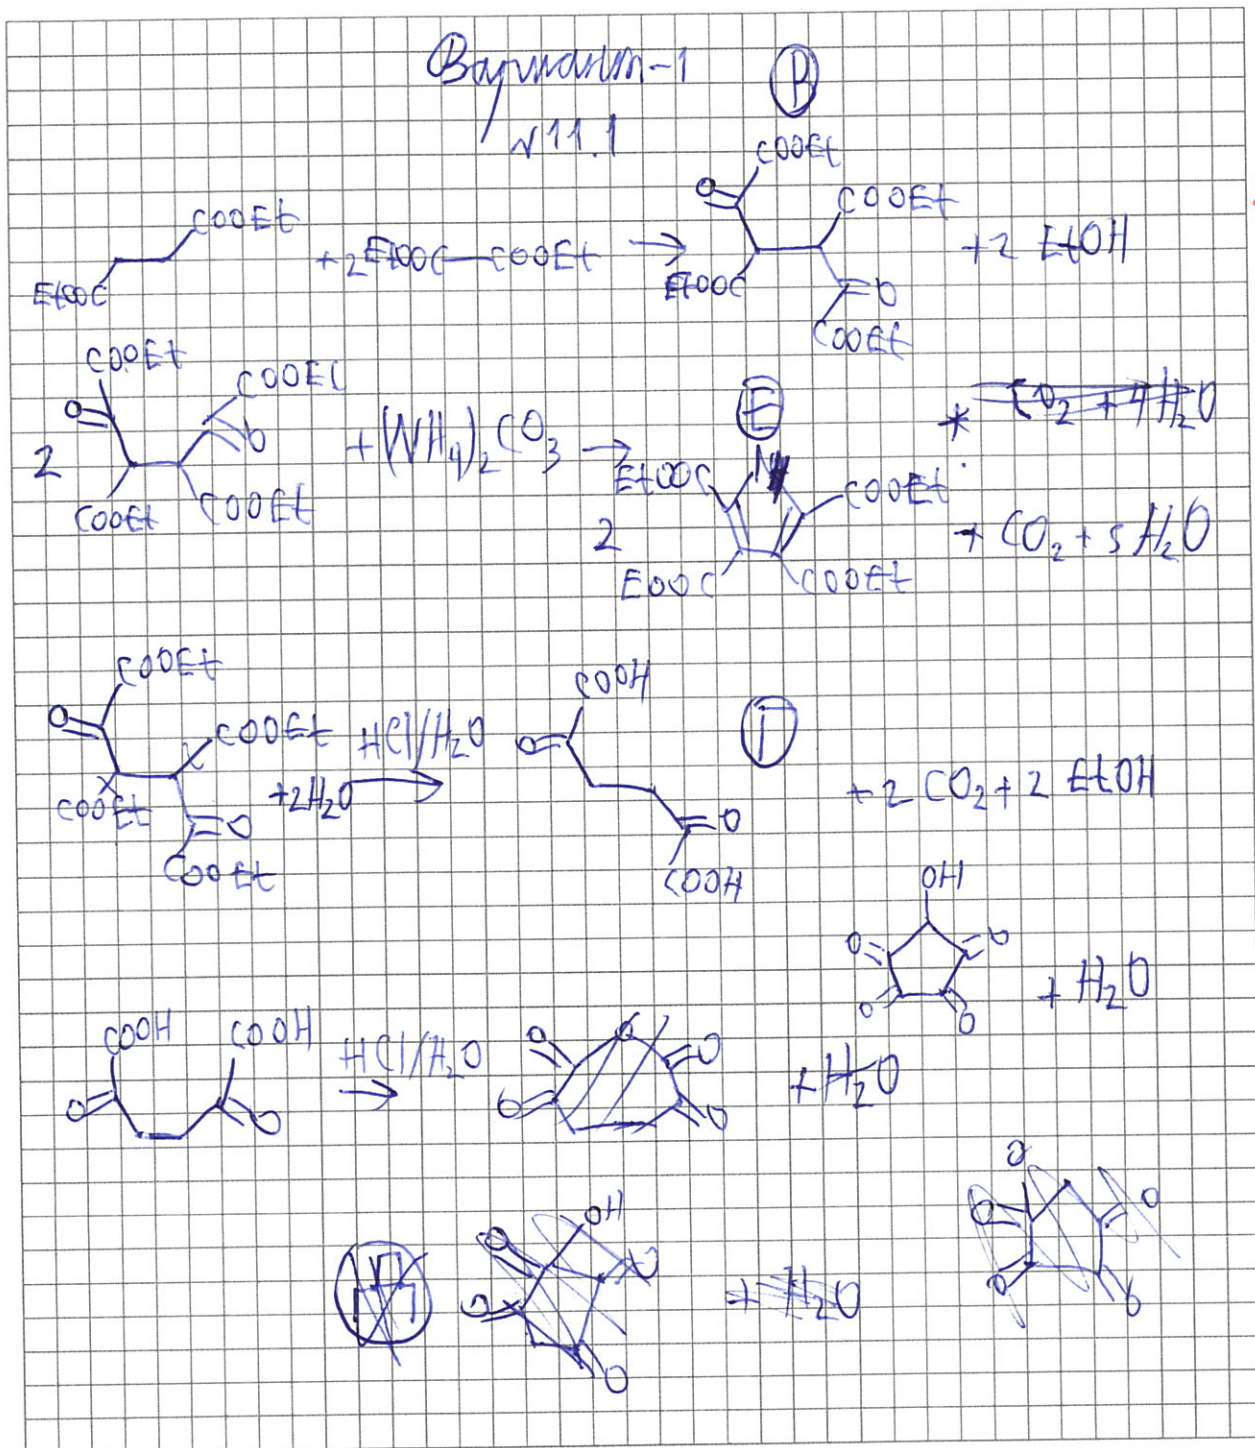 Вариант-1 В
√11.1
COOEt
O COOEt
COOEt
EtOOC + 2EtOOC—COOEt → EtOOC O COOEt + 2 EtOH
COOEt COOEt
2 O O COOEt COOEt + (NH4)2CO3 → Е
2 EtOOC N COOEt EtOOC COOEt + CO2 + 5H2O
* CO2 + 4H2O
COOEt
O COOEt COOEt O COOEt + 2H2O HCl/H2O → COOH O O COOH Г + 2 CO2 + 2 EtOH
OH
O O O O + H2O
COOH COOH O O HCl/H2O → O O O O O + H2O
OH
O O O O + H2O
O O O O O